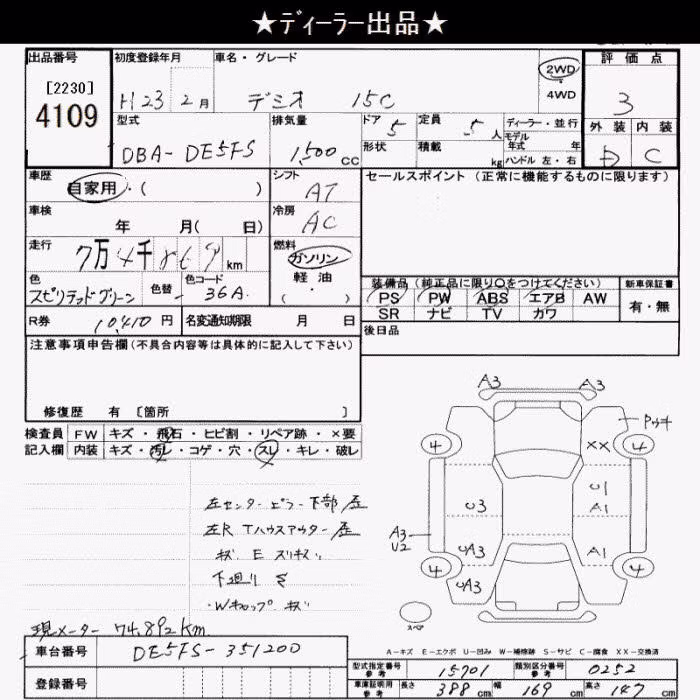 ★ディーラー出品★
出品番号
[2230]
4109
初度登録年月
H23 2月
車名・グレード
デミオ 15C
2WD
4WD
評価点
3
外装 内装
D C
型式
DBA-DE5FS
排気量
1,500cc
ドア 5
形状
定員 5人
積載 kg
ディーラー・並行
モデル
年式 年
ハンドル 左・右
車歴
自家用・( )
シフト
AT
車検
年 月( 日)
冷房
AC
走行
7万4千869km
燃料
ガソリン
軽油
( )
色
スピリテッドグリーン
色替
色コード
36A
R券 10,410円
名変通知期限 月 日
セールスポイント(正常に機能するものに限ります)
装備品(純正品に限り○をつけてください)
PS PW ABS エアB AW
SR ナビ TV カワ
新車保証書
有・無
後日品
注意事項申告欄(不具合内容等は具体的に記入して下さい)
修復歴 有 〔箇所 〕
検査員 FW キズ・飛石・ヒビ割・リペア跡・×要
記入欄 内装 キズ・汚レ・コゲ・穴・スレ・キレ・破レ
左センターピラー下部
左R Tハウスアウター
キズ E スリキズ
下廻り
・Wキャップ キズ
現メーター 74,892km
A3 A3
XX
4 4
U3 U1
A1
A3
U2
UA3 A1
4 4
UA3
スペア
A-キズ E-エクボ U-凹み W-補修跡 S-サビ C-腐食 XX-交換済
車台番号 DE5FS-351200
登録番号
型式指定番号
参考
15701
類別区分番号
参考
0252
車庫証明用
参考
長さ 388cm 幅 169cm 高さ 147cm